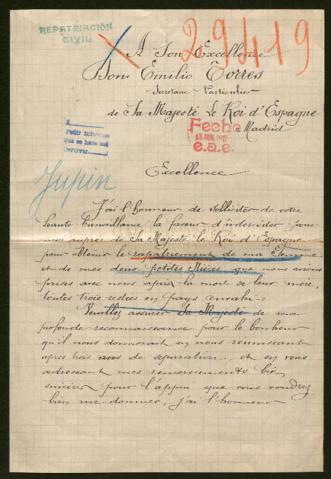 REPATRIACIÓN
CIVIL
29419
A Son Excellence
Don Emilio Torres
Secrétaire Particulier
de Sa Majesté Le Roi d'Espagne
Madrid
Fecha
e.a.e.
A
Pedir informes
que no han sido
Excellence
Jupin
J'ai l'honneur de solliciter de votre
haute bienveillance la faveur d'intercéder pour
moi auprès de Sa Majesté le Roi d'Espagne
pour obtenir le rapatriement de ma femme
et de mes deux petites Nièces que nous avions
prises avec nous après la mort de leur mère,
toutes trois restées en pays envahi.
Veuillez assurer Sa Majesté de ma
profonde reconnaissance pour le bonheur
qu'il nous donnerait en nous réunissant
après trois ans de séparation, et en vous
adressant mes remerciements bien
sincères pour l'appui que vous voudrez
bien me donner, j'ai l'honneur